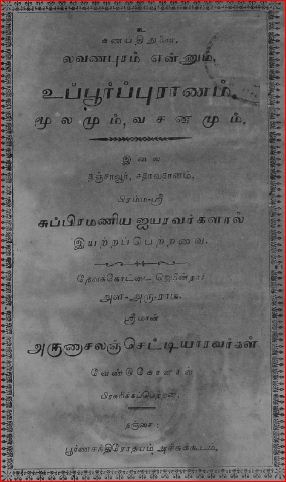 உ
கணபதி துணை.
லவணபுரம் என்னும்,
உப்பூர்ப்புராணம்,
மூலமும், வசனமும்,
இவை
தஞ்சாவூர், சதாவதானம்,
பிரம்ம-ஸ்ரீ
சுப்பிரமணிய ஐயரவர்களால்
இயற்றப்பெற்றனவ.
தேவகோட்டை ஜெமீன்தார்
அள-அரு-ராம.
ஸ்ரீமான்
அருணாசலஞ்செட்டியாரவர்கள்
வேண்டுகோளால்
பிரசுரிக்கப்பெற்றன.
மதுரை:
பூர்ணசந்திரோதயம் அச்சுக்கூடம்.